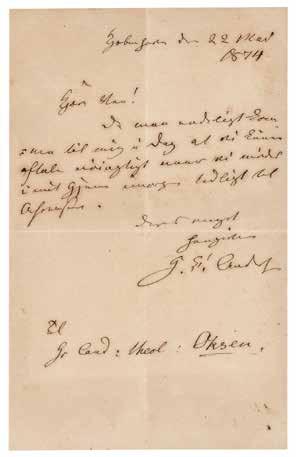 Kjøbenhavn den 22 Mai
1874
Kjære Ven!
De maa endeligt kom-
=me til mig i Dag at vi kunne
aftale nöiagtigt naar vi mödes
i mit Hjem morgen tidligt til
Afreisen.
Deres meget
hengivne
Til
Hr Cand: theol: Oksen.